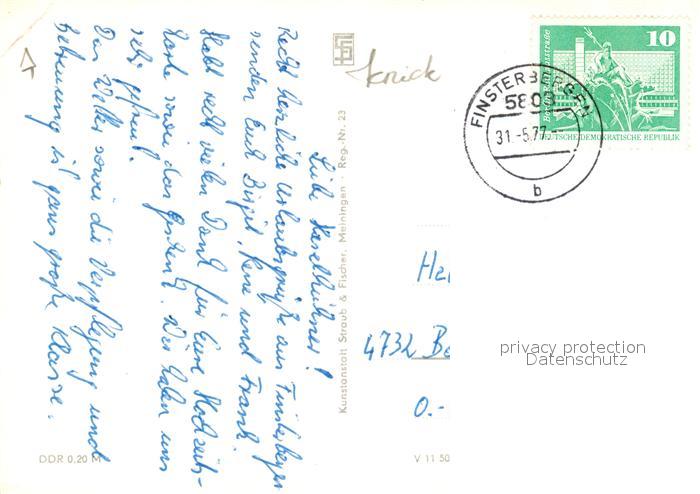 Liebe Haselhühner!
Recht herzliche Urlaubsgrüße aus Finsterbergen
senden Euch Birgit, Rene und Frank.
Habt recht vielen Dank für Eure Hochzeits-
karte sowie das Geschenk. Wir haben uns
sehr gefreut.
Das Wetter sowie die Verpflegung und
Betreuung ist ganz große Klasse.
DDR 0,20 M
Kunstanstalt Straub & Fischer, Meiningen · Reg.-Nr. 23
V 11 50
Knick
10
DEUTSCHE DEMOKRATISCHE REPUBLIK
FINSTERBERGEN
5809
31.-5.77.-
b
4732 Be
0.-
privacy protection
Datenschutz